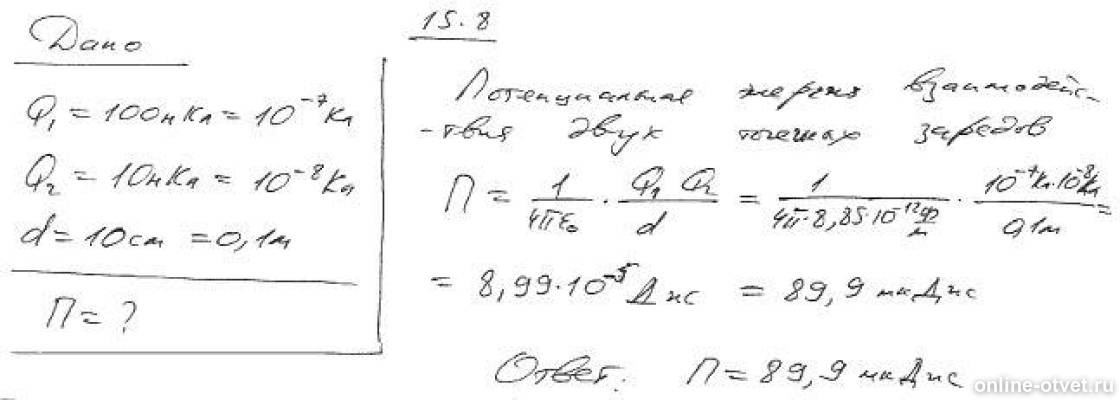 Дано
Q₁ = 100нКл = 10⁻⁷Кл
Q₂ = 10нКл = 10⁻⁸Кл
d = 10см = 0,1м
П = ?
15.8
Потенциальная энергия взаимодейс-
-твия двух точечных зарядов
П = 1/(4πε₀) · Q₁ Q₂/d = 1/(4π·8,85·10⁻¹² ф/м) · 10⁻⁷Кл·10⁻⁸Кл/0,1м =
= 8,99·10⁻⁵ Дж = 89,9 мкДж
Ответ. П = 89,9 мкДж
online-otvet.ru